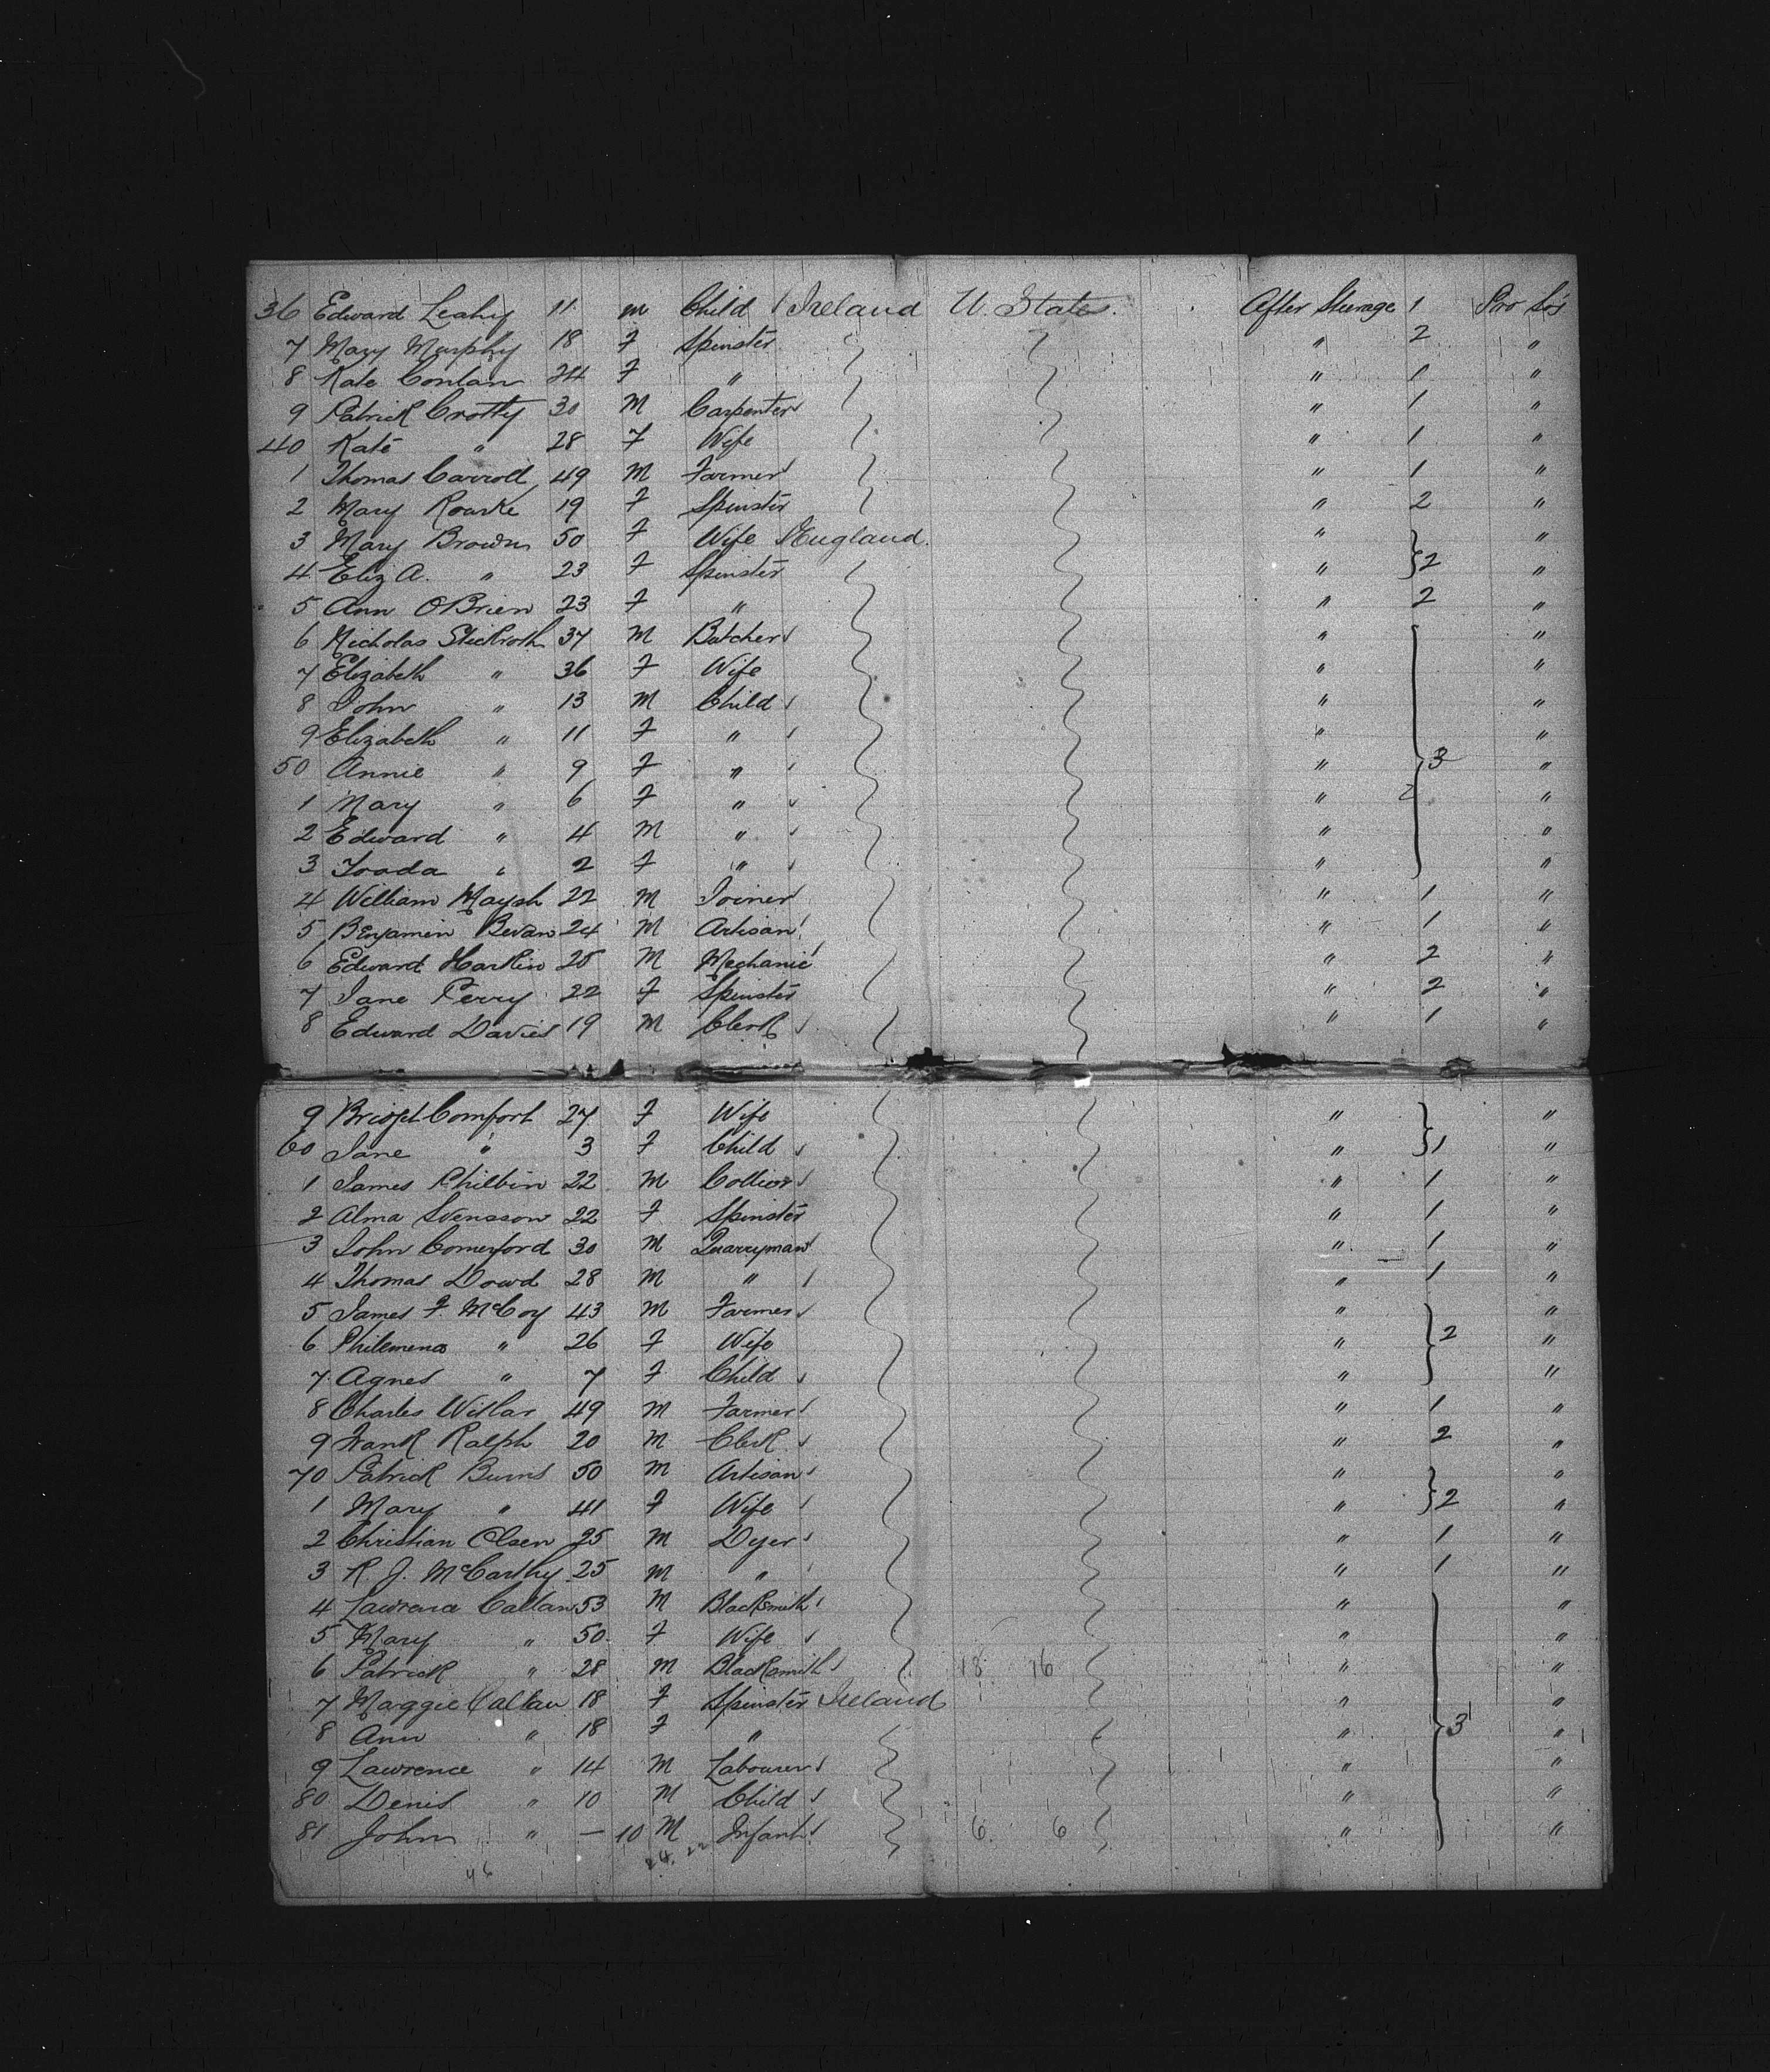 36 Edward Leahy 11 m Child Ireland U. States. After Steerage 1 Pro So's
7 Mary Murphy 18 F Spinster " 2 "
8 Kate Conlan 24 F " " 1 "
9 Patrick Crotty 30 M Carpenter " 1 "
40 Kate " 28 F Wife " 1 "
1 Thomas Carroll 49 M Farmer " 1 "
2 Mary Rourke 19 F Spinster " 2 "
3 Mary Brown 50 F Wife England. " "
4 Eliz A. " 23 F Spinster " 2 "
5 Ann OBrien 23 F " " 2 "
6 Nicholas 37 M Butcher " "
7 Elizabeth " 36 F Wife " "
8 John " 13 M Child " "
9 Elizabeth " 11 F " " "
50 Annie " 9 F " " 3 "
1 Mary " 6 F " " 2 "
2 Edward " 4 M " " "
3 " 2 F " " "
4 William Maysh 22 M Joiner " 1 "
5 Benjamin Bevan 24 M Artisan " 1 "
6 Edward Harkin 25 M Mechanic " 2 "
7 Jane Perry 22 F Spinster " 2 "
8 Edward Davies 19 M Clerk " 1 "
9 Bridget Comfort 27 F Wife " "
60 Jane " 3 F Child " 1 "
1 James Philbin 22 M Collier " 1 "
2 Alma Svensson 22 F Spinster " 1 "
3 John Comerford 30 M Quarryman " 1 "
4 Thomas Dowd 28 M " " 1 "
5 James F. McCoy 43 M Farmer " "
6 Philemena " 26 F Wife " 2 "
7 Agnes " 7 F Child " "
8 Charles 49 M Farmer " 1 "
9 Frank Ralph 20 M Clerk " 2 "
70 Patrick Burns 50 M Artisan " "
1 Mary " 41 F Wife " 2 "
2 Christian Olsen 25 M Dyer " 1 "
3 R. J. McCarthy 25 M " " 1 "
4 Lawrence Callan 53 M Blacksmith " "
5 Mary " 50 F Wife " "
6 Patrick " 28 M Blacksmith 18 16 " "
7 Maggie Callan 18 F Spinster Ireland " "
8 Ann " 18 F " " 3 "
9 Lawrence " 14 M Labourer " "
80 Denis " 10 M Child " "
81 John " — 10 M Infant 6. 6 " "
46 24. 22